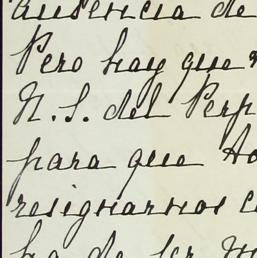 ausencia de
Pero hay que
N. S. del Perp
para que
resignarnos
ha de ser